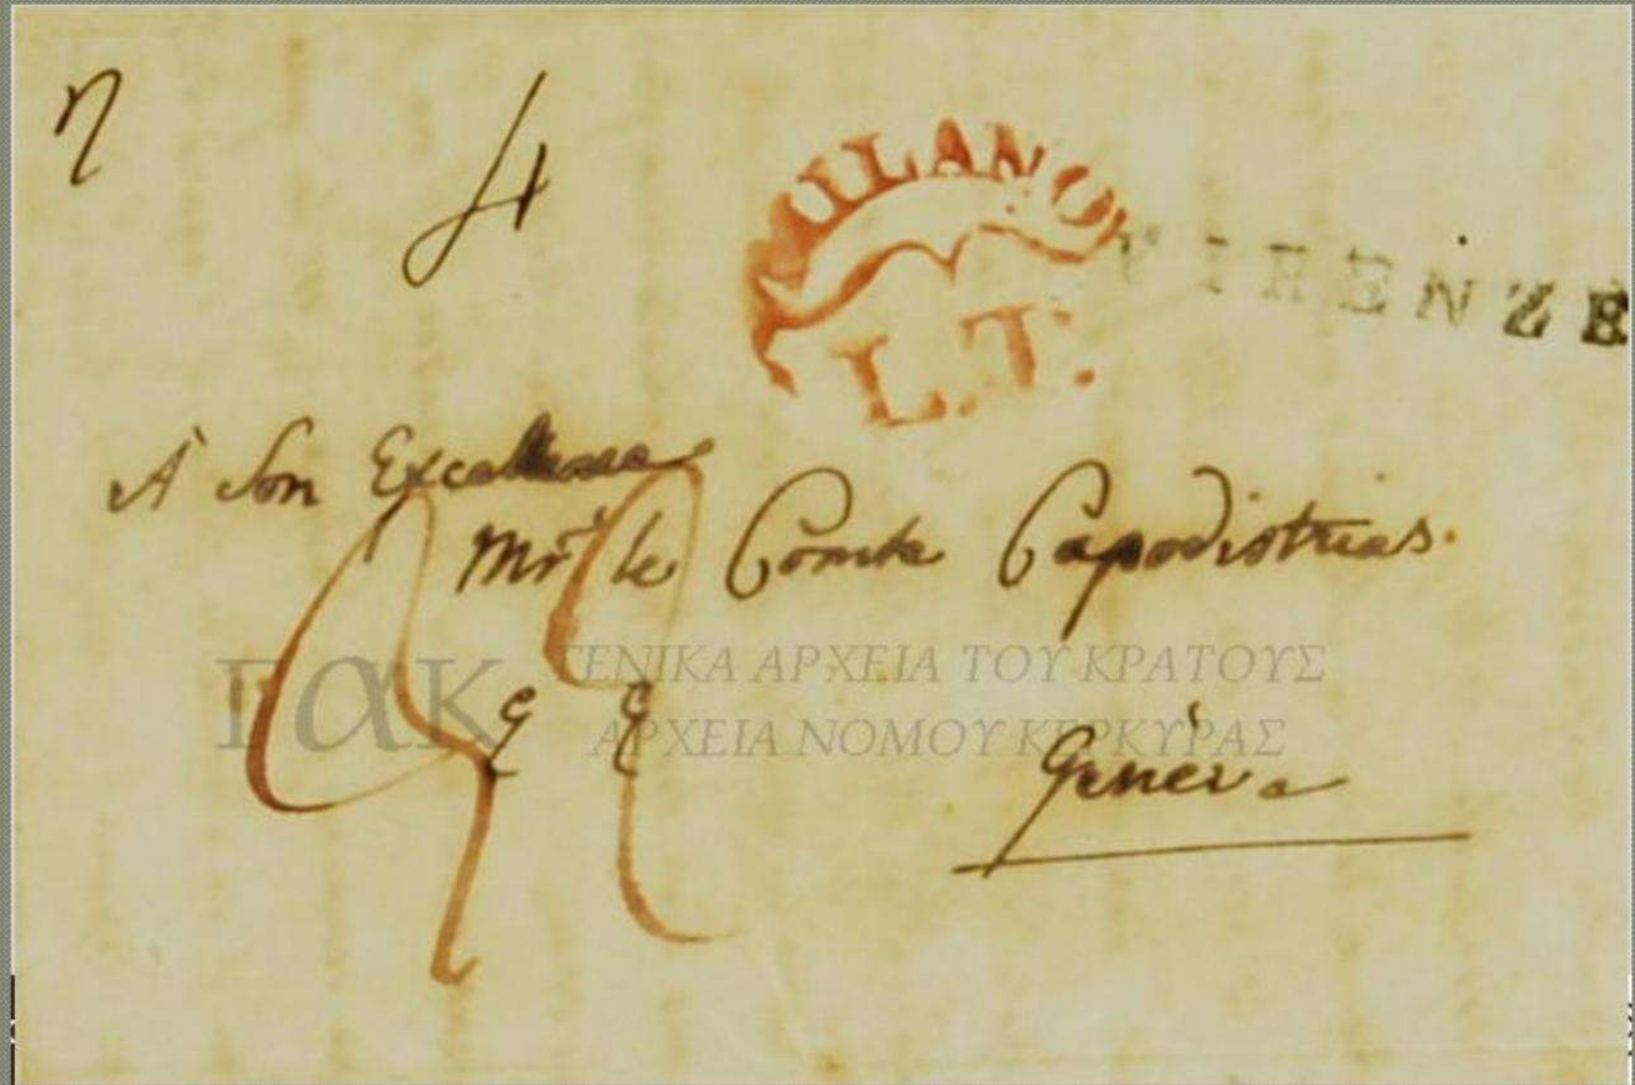 4
MILANO
L.T.
FIRENZE
À Son Excellence
Mr le Comte Capodistrias.
ΓαΚ ΓΕΝΙΚΑ ΑΡΧΕΙΑ ΤΟΥ ΚΡΑΤΟΥΣ
ΑΡΧΕΙΑ ΝΟΜΟΥ ΚΕΡΚΥΡΑΣ
Genève